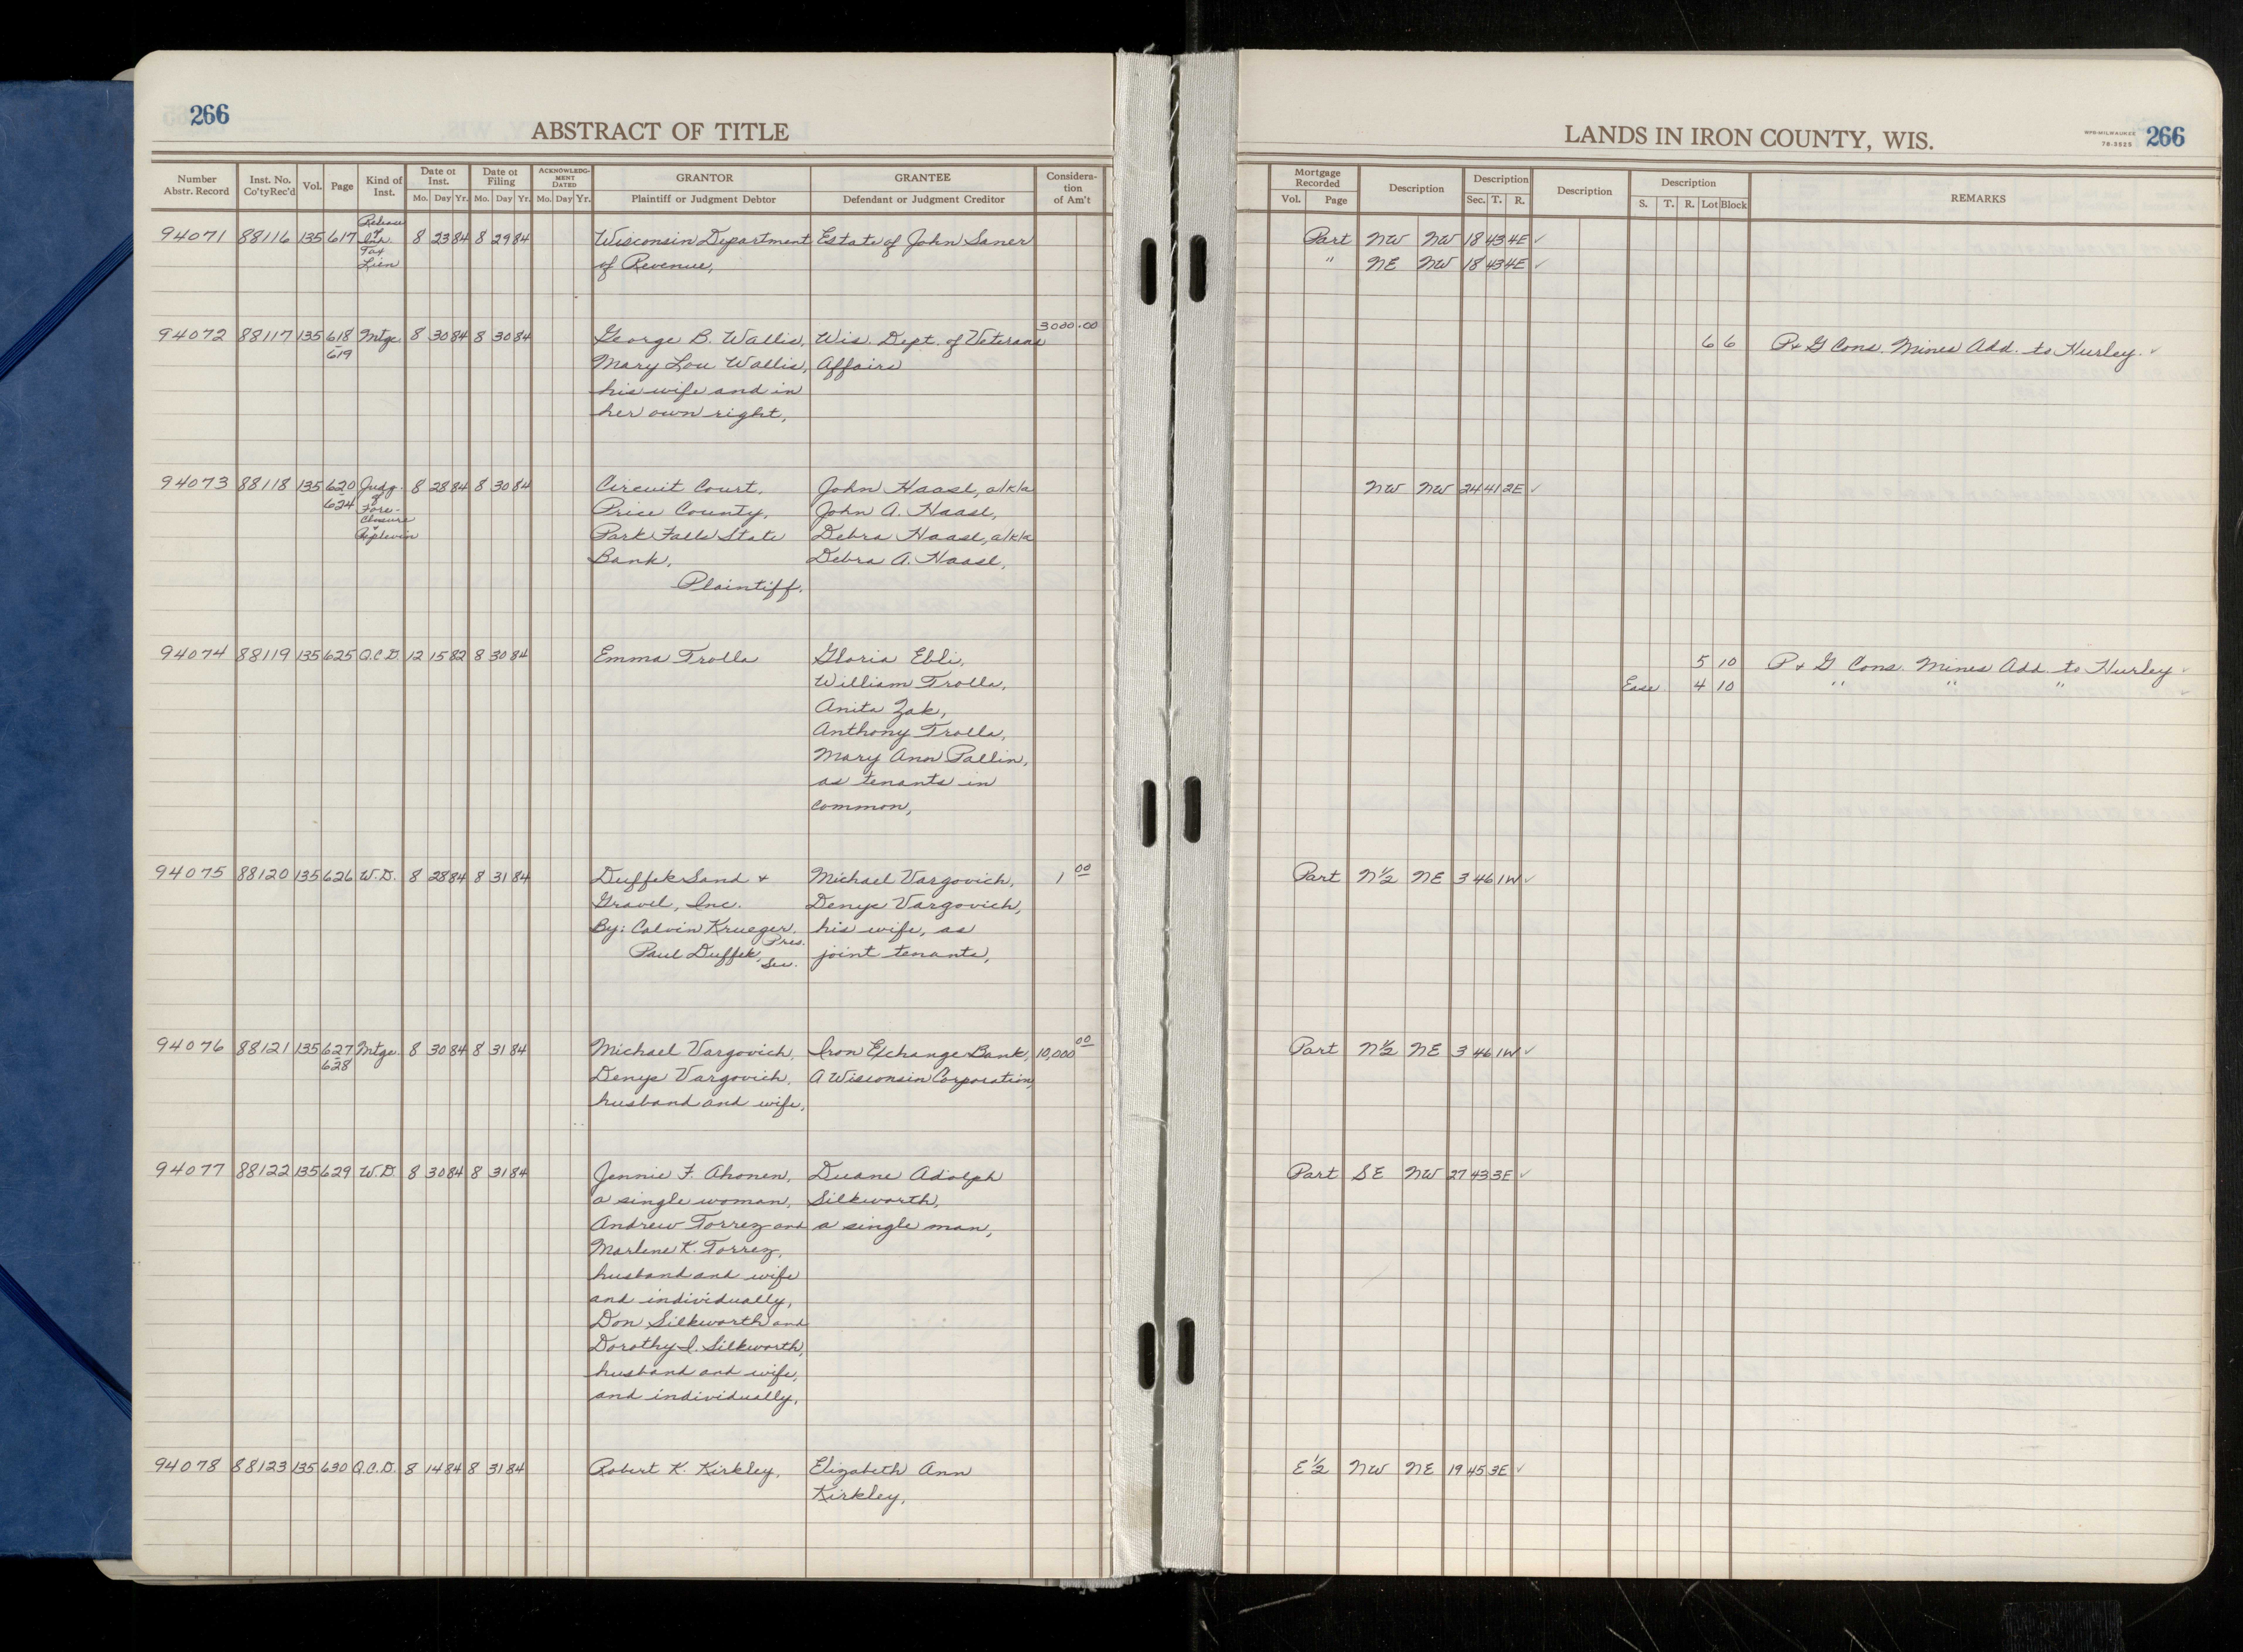 266
ABSTRACT OF TITLE
Number Abstr. Record | Inst. No. Co'tyRec'd | Vol. | Page | Kind of Inst. | Date of Inst. Mo. Day Yr. | Date of Filing Mo. Day Yr. | ACKNOWLEDG-MENT DATED Mo. Day Yr. | GRANTOR Plaintiff or Judgment Debtor | GRANTEE Defendant or Judgment Creditor | Considera-tion of Am't
94071 88116 135 617 Release of Inh. Tax Lien 8 23 84 8 29 84 Wisconsin Department Estate of John Saner
of Revenue,
94072 88117 135 618-619 Mtge. 8 30 84 8 30 84 George B. Wallis, Wis. Dept. of Veterans 3000.00
Mary Lou Wallis, Affairs
his wife and in
her own right,
94073 88118 135 620-624 Judg. of Fore-closure & Replevin 8 28 84 8 30 84 Circuit Court, John Haasl, a/k/a
Price County, John A. Haasl,
Park Falls State Debra Haasl, a/k/a
Bank, Debra A. Haasl,
Plaintiff.
94074 88119 135 625 Q.C.D. 12 15 82 8 30 84 Emma Trolla Gloria Ebli,
William Trolla,
Anita Zak,
Anthony Trolla,
Mary Ann Pallin,
as tenants in
common,
94075 88120 135 626 W.D. 8 28 84 8 31 84 Duffek Sand & Michael Vargovich, 1 00
Gravel, Inc. Denyc Vargovich,
By: Calvin Krueger, Pres. his wife, as
Paul Duffek, Sec. joint tenants,
94076 88121 135 627-628 Mtge. 8 30 84 8 31 84 Michael Vargovich, Iron Exchange Bank, 10,000 00
Denyc Vargovich, A Wisconsin Corporation,
husband and wife,
94077 88122 135 629 W.D. 8 30 84 8 31 84 Jennie F. Ahonen, Duane Adolph
a single woman, Silkworth,
Andrew Torrez and a single man,
Marlene K. Torrez,
husband and wife
and individually,
Don Silkworth and
Dorothy I. Silkworth,
husband and wife,
and individually,
94078 88123 135 630 Q.C.D. 8 14 84 8 31 84 Robert K. Kirkley, Elizabeth Ann
Kirkley,
LANDS IN IRON COUNTY, WIS.
MPB-MILWAUKEE
78-3525
266
Mortgage Recorded Vol. Page | Description | Description Sec. T. R. | Description | Description S. T. R. Lot Block | REMARKS
Part NW NW 18 43 4E ✓
" NE NW 18 43 4E ✓
6 6 P & G Cons. Mines Add. to Hurley. ✓
NW NW 24 41 2E ✓
5 10 P & G Cons. Mines Add. to Hurley ✓
Ease 4 10 " " " ✓
Part N½ NE 3 46 1W ✓
Part N½ NE 3 46 1W ✓
Part SE NW 27 43 3E ✓
E½ NW NE 19 45 3E ✓